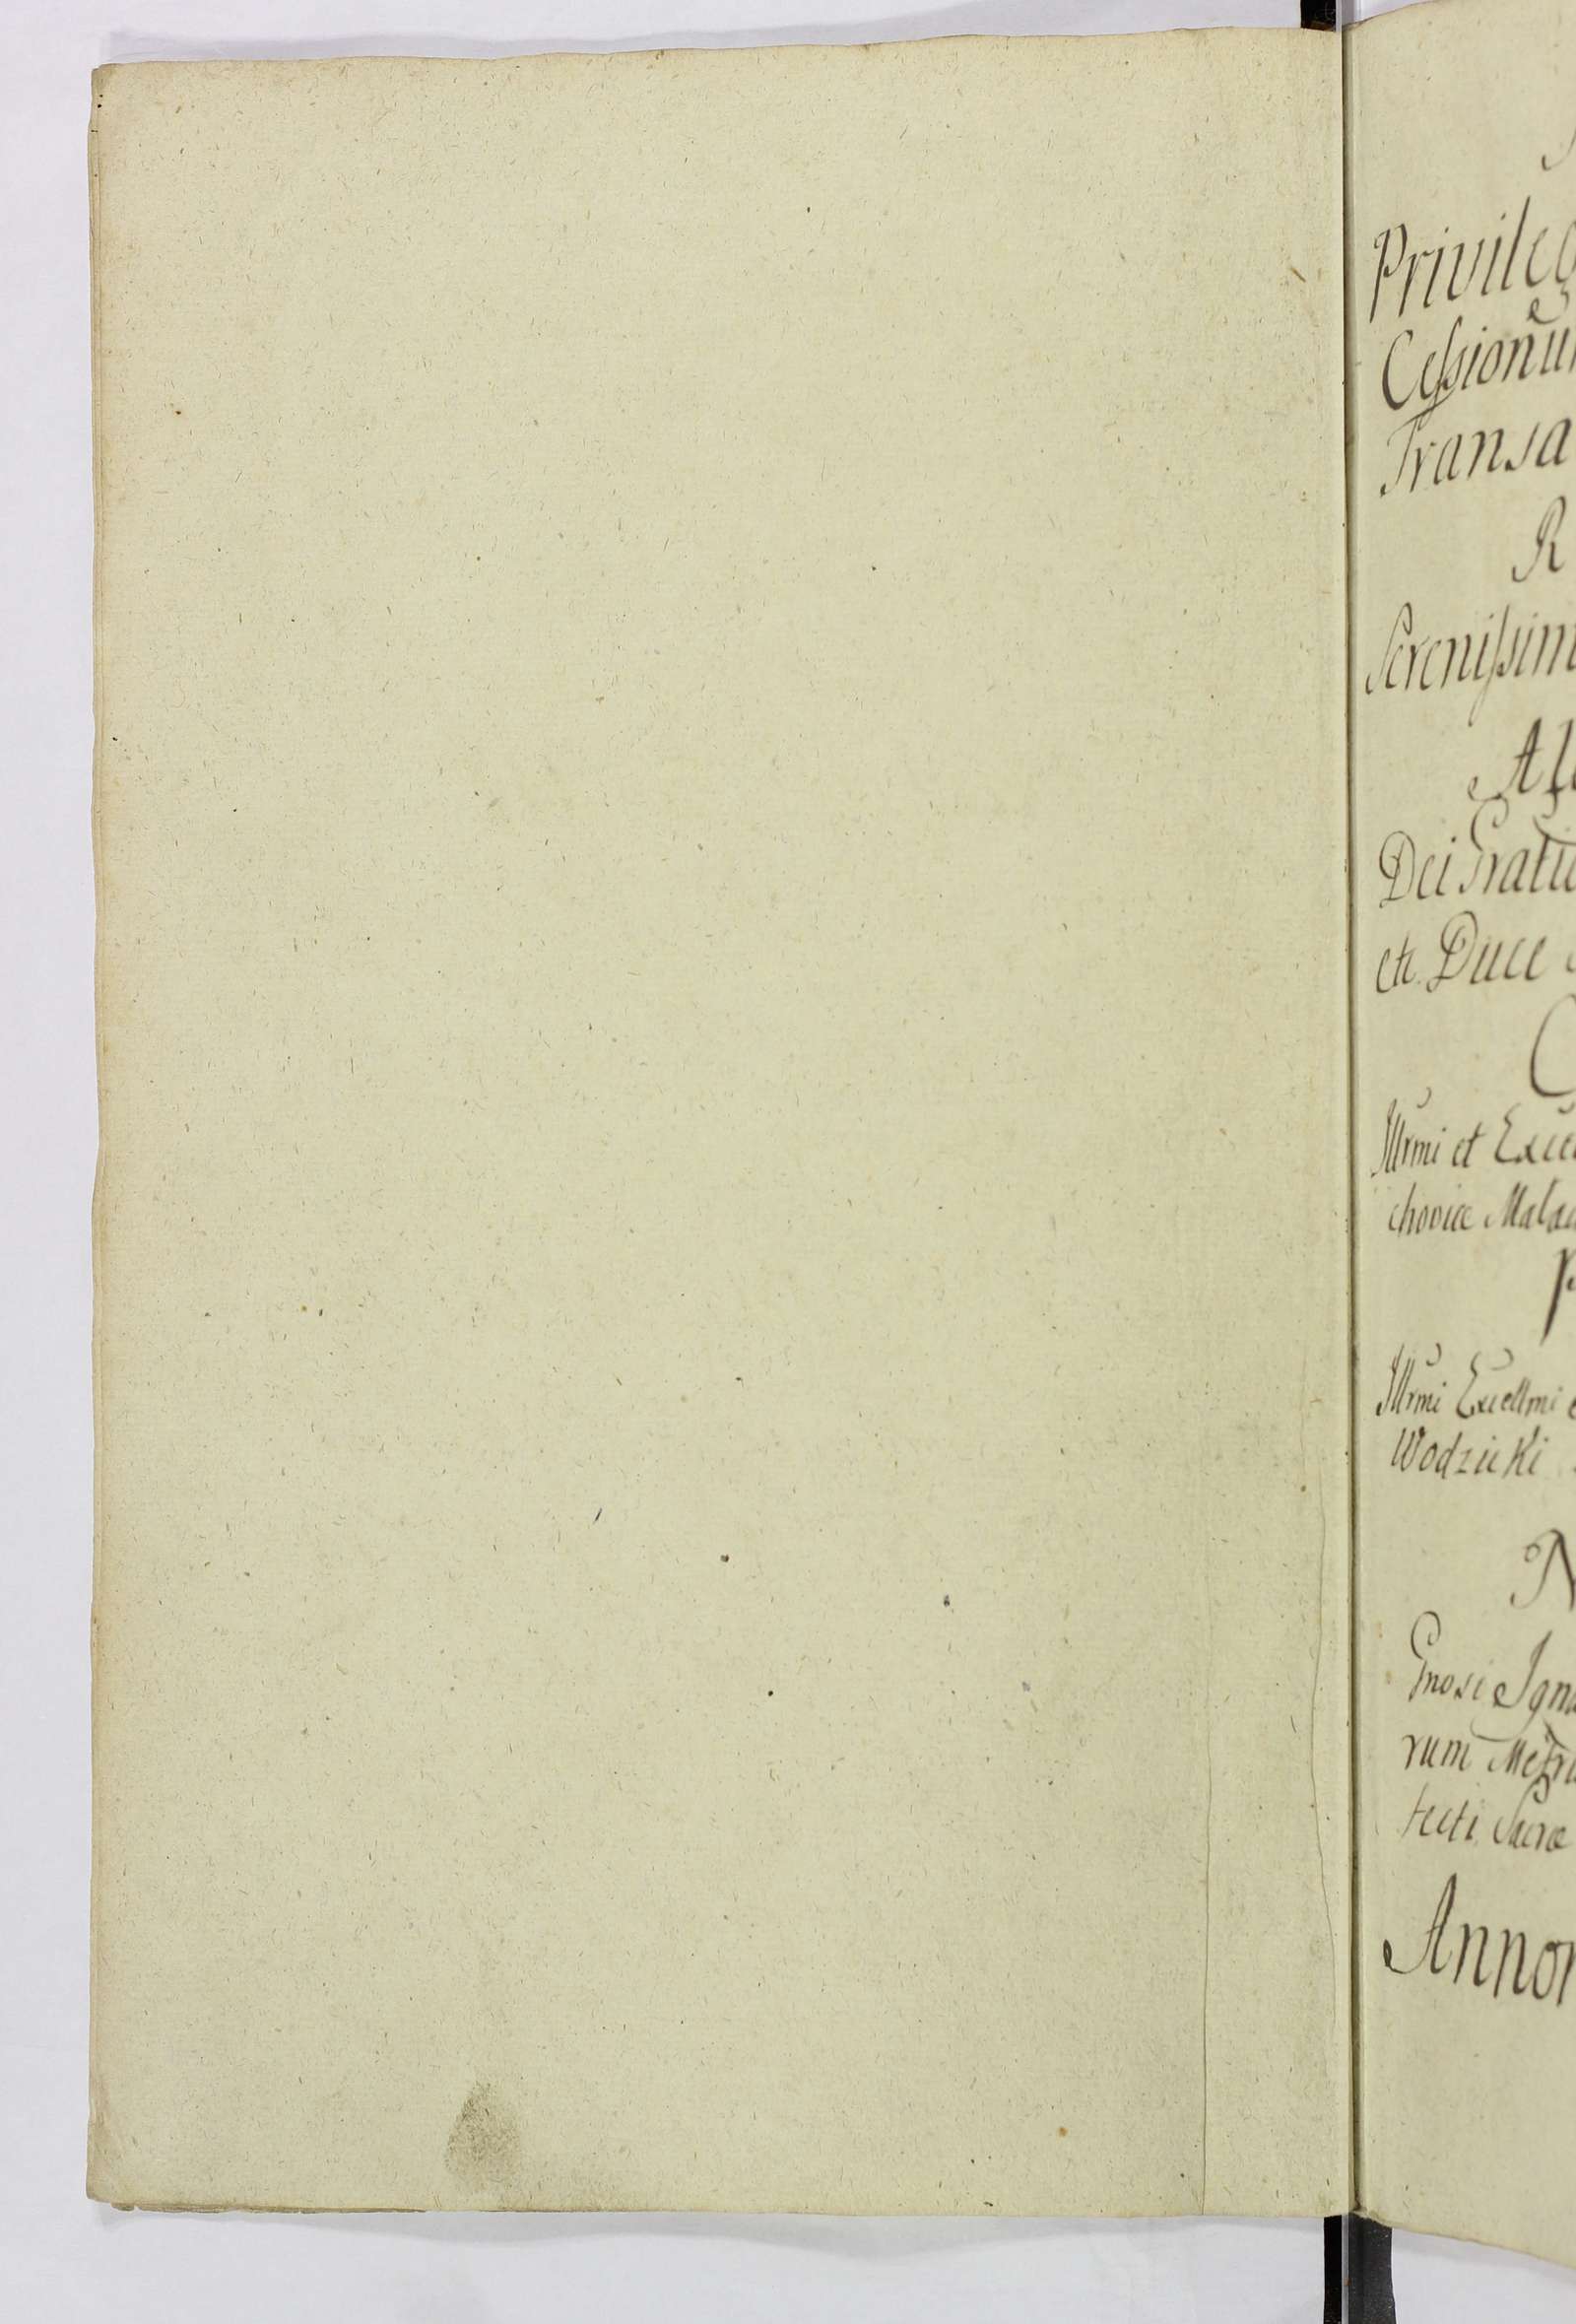 Privileg
Cessionu
Transa
R
Serenissim
Dei Grati
etc. Duce
C
Illrmi et Exce
chovice Mala
P
Illrmi Excellmi
Wodzicki
N
Gnosi Igna
rum Metri
tecti Sacræ
Annor